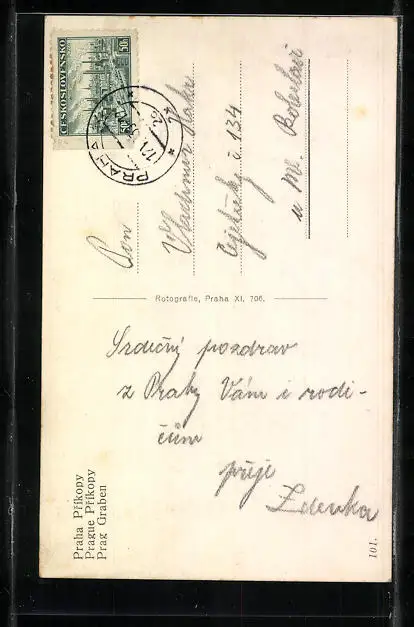 ČESKOSLOVENSKO
50h
PRAHA
Pan
Vladimír
č. 134
u Ml. Boleslavi
Rotografie, Praha XI, 706.
Srdečný pozdrav
z Prahy Vám i rodi-
čům
přeje
Zdenka
Praha Příkopy
Prague Příkopy
Prag Graben
101.